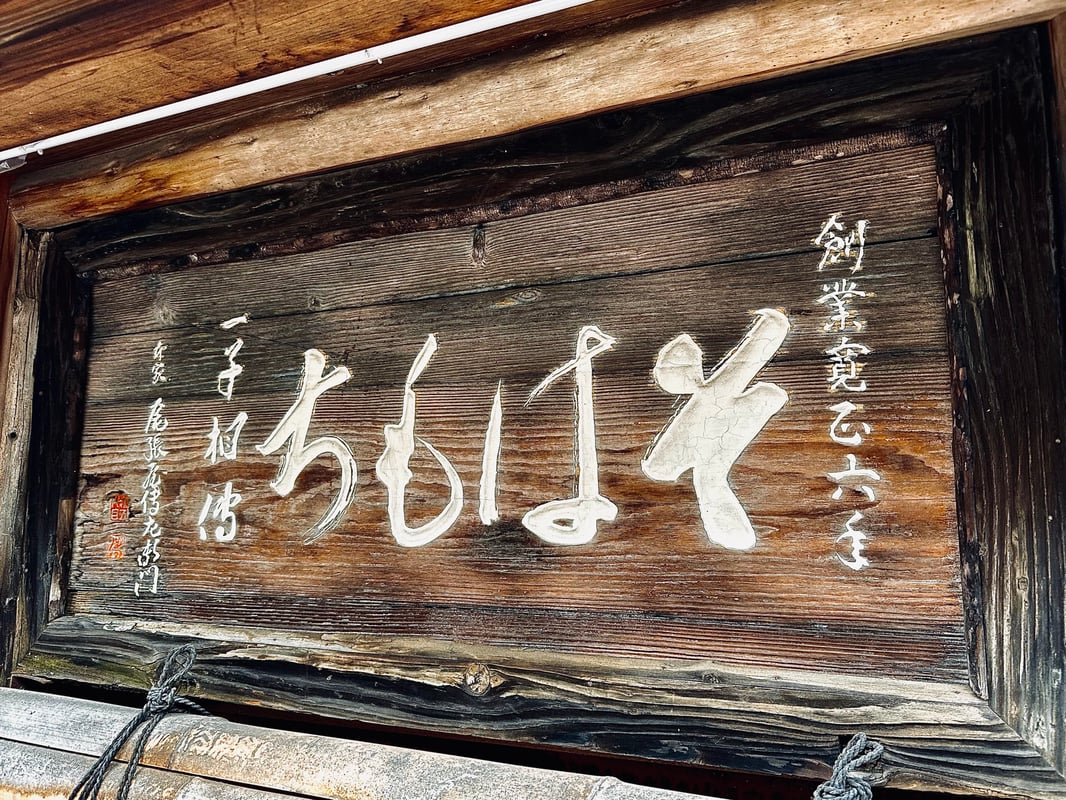 創業寛正六年
そはもち
一子相傳
本家 尾張屋傳左衛門